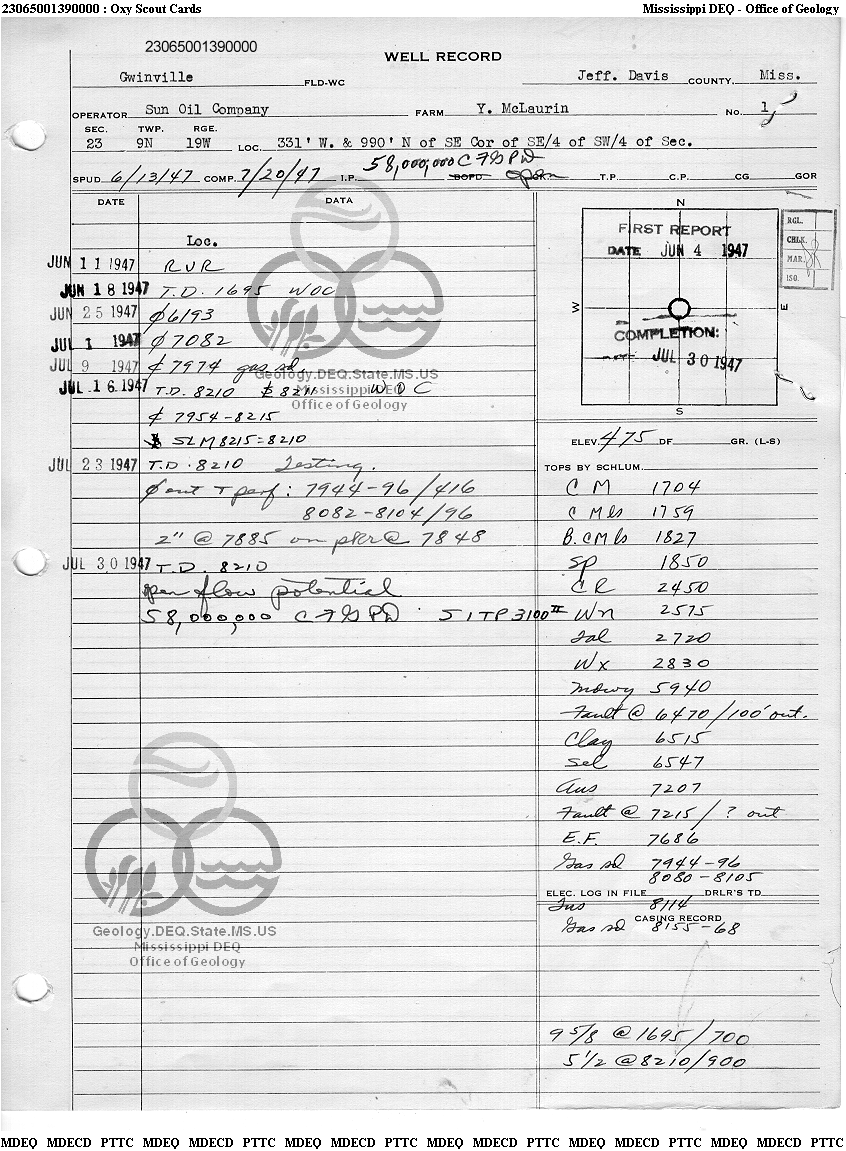 23065001390000 : Oxy Scout Cards Mississippi DEQ - Office of Geology
23065001390000
WELL RECORD
Gwinville FLD-WC Jeff. Davis COUNTY. Miss.
OPERATOR Sun Oil Company FARM Y. McLaurin NO. 1
SEC. TWP. RGE.
23 9N 19W LOC. 331' W. & 990' N of SE Cor of SE/4 of SW/4 of Sec.
SPUD 6/13/47 COMP. 7/20/47 I.P. 58,000,000 CFGPD BOPD open T.P. C.P. CG GOR
DATE DATA
Loc.
JUN 11 1947 RUR
JUN 18 1947 T.D. 1695 WOC
JUN 25 1947 ₵ 6193
JUL 1 1947 ₵ 7082
JUL 9 1947 ₵ 7974 gas sd.
JUL 16 1947 T.D. 8210 8211 WOC
₵ 7954-8215
SLM 8215 = 8210
JUL 23 1947 T.D. 8210 Testing.
₵ out & perf: 7944-96/416
8082-8104/96
2" @ 7885 on pkr @ 7848
JUL 30 1947 T.D. 8210
open flow potential
58,000,000 CFGPD SITP 3100#
Geology.DEQ.State.MS.US
Mississippi DEQ
Office of Geology
Geology.DEQ.State.MS.US
Mississippi DEQ
Office of Geology
N
FIRST REPORT
DATE JUN 4 1947
W E
COMPLETION:
JUL 30 1947
S
RGL.
CHLK.
MAR.
ISO.
ELEV. 475 DF GR. (L-S)
TOPS BY SCHLUM.
CM 1704
C Mls 1759
B. C Mls 1827
SP 1850
CR 2450
Wn 2575
Tal 2720
Wx 2830
Mdwy 5940
Fault @ 6470/100' out.
Clay 6515
Sel 6547
Aus 7207
Fault @ 7215/? out
E.F. 7686
Gas sd 7944-96
8080-8105
ELEC. LOG IN FILE DRLR'S TD
Tus 8114
CASING RECORD
Gas sd 8155-68
9 5/8 @ 1695/700
5 1/2 @ 8210/900
MDEQ MDECD PTTC MDEQ MDECD PTTC MDEQ MDECD PTTC MDEQ MDECD PTTC MDEQ MDECD PTTC MDEQ MDECD PTTC